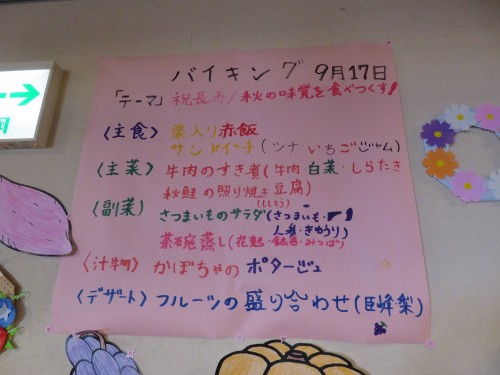 バイキング 9月17日
「テーマ」祝長寿!秋の味覚を食べつくす!
〈主食〉栗入り赤飯
サンドイッチ(ツナ・いちごジャム)
〈主菜〉牛肉のすき煮(牛肉・白菜・しらたき
秋鮭の照り焼き豆腐)
(ししとう)
〈副菜〉さつまいものサラダ(さつまいも・
人参・きゅうり)
茶碗蒸し(花麩・銀杏・みつば)
〈汁物〉かぼちゃのポタージュ
〈デザート〉フルーツの盛り合わせ(巨峰・梨)